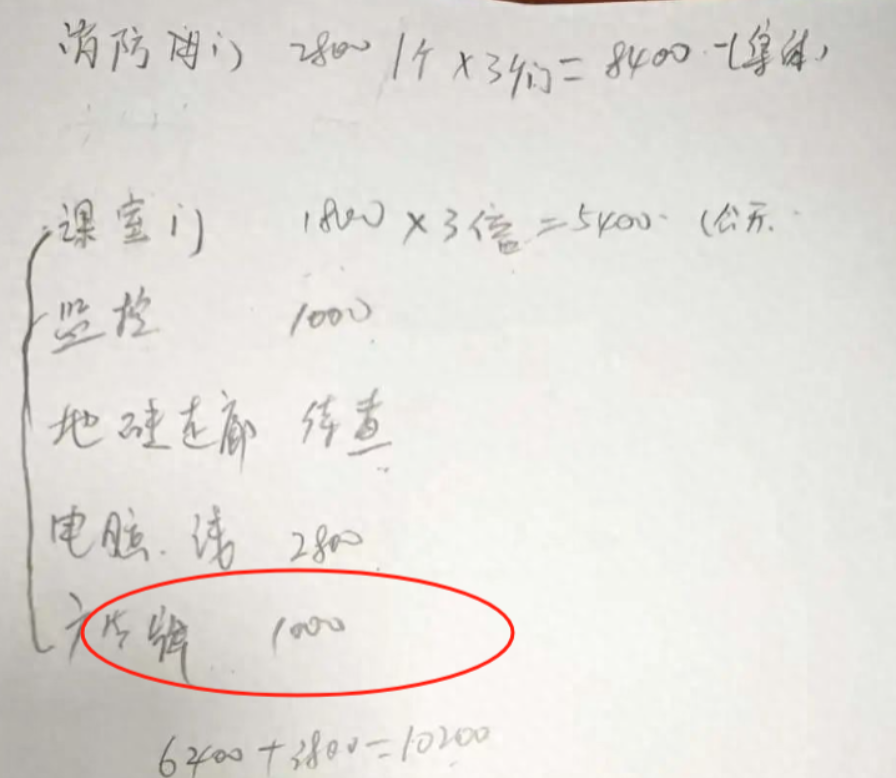 消防门 2800 1个×3个门=8400
课室门 1800×3倍=5400 (公开
监控 1000
地砖走廊 待查
电脑.线 2800
1000
6400+3800=10200